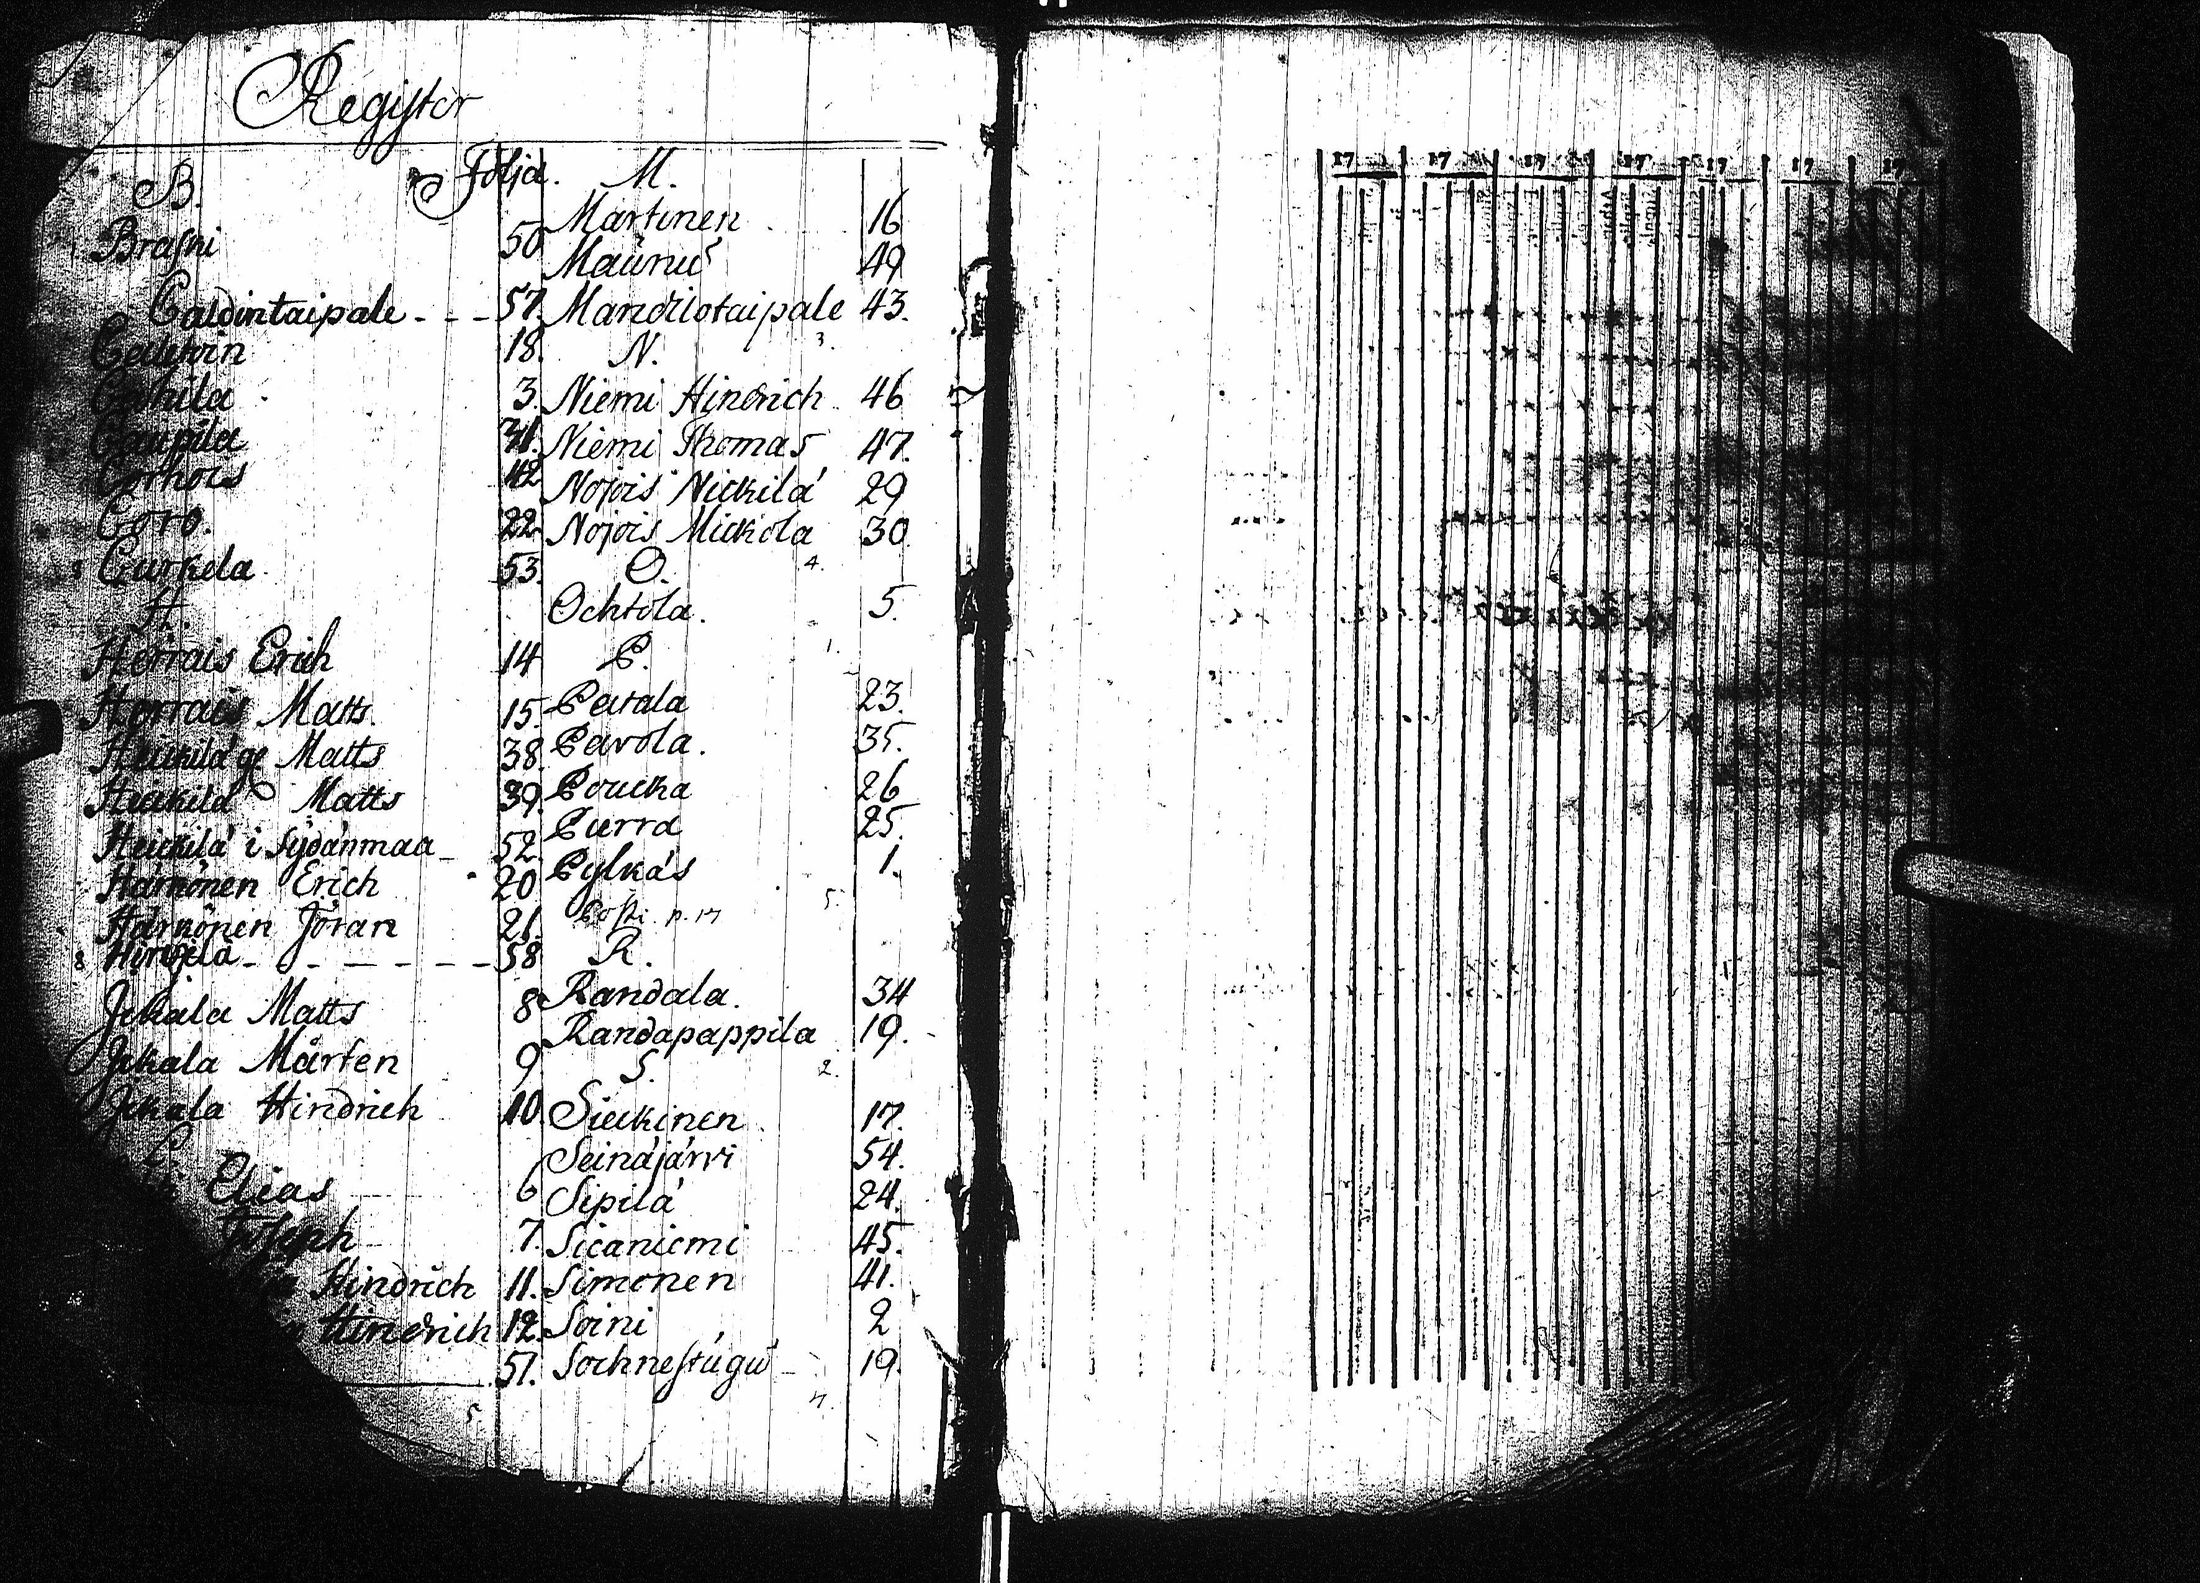 Register
Folja.
B.
Brasni 50
Caldintaipale - - - 57.
18.
3.
Caupila 31.
Corhois 42
Coro. 22.
Curkela. 53.
H.
Herrais Erich 14
Herrais Matts. 15.
Heickilä Matts 38.
Heickilä Matts 39.
Heickilä i Sydänmaa 52.
Härkönen Erich 20
Härkönen Jöran 21.
Hingela - - - - - - 58
Jckala Matts 8
Jckala Mårten 9
Jckala Hindrich 10.
L.
Elias 6
Joseph 7.
Hindrich 11.
Hindrich 12.
51.
5
M.
Martinen 16
Maunus 49
Mandilotaipale 43.
3.
N.
Niemi Hindrich 46
Niemi Thomas 47.
Nojois Nickilä 29
Nojois Mickola 30
4.
O.
Ochtola. 5.
1.
P.
Peltala 23.
Pavola. 35.
Poucka 26
Purra 25.
Pylkäs 1.
Posti. p. 17
5.
R.
Randala. 34
Randapappila 19.
2.
S.
Sieckinen 17.
Seinäjärvi 54.
Sipilä 24.
Sicaniemi 45.
Simonen 41.
Soini 2
Sochnestugu 19.
7.
17 17 17 17 17 17 17